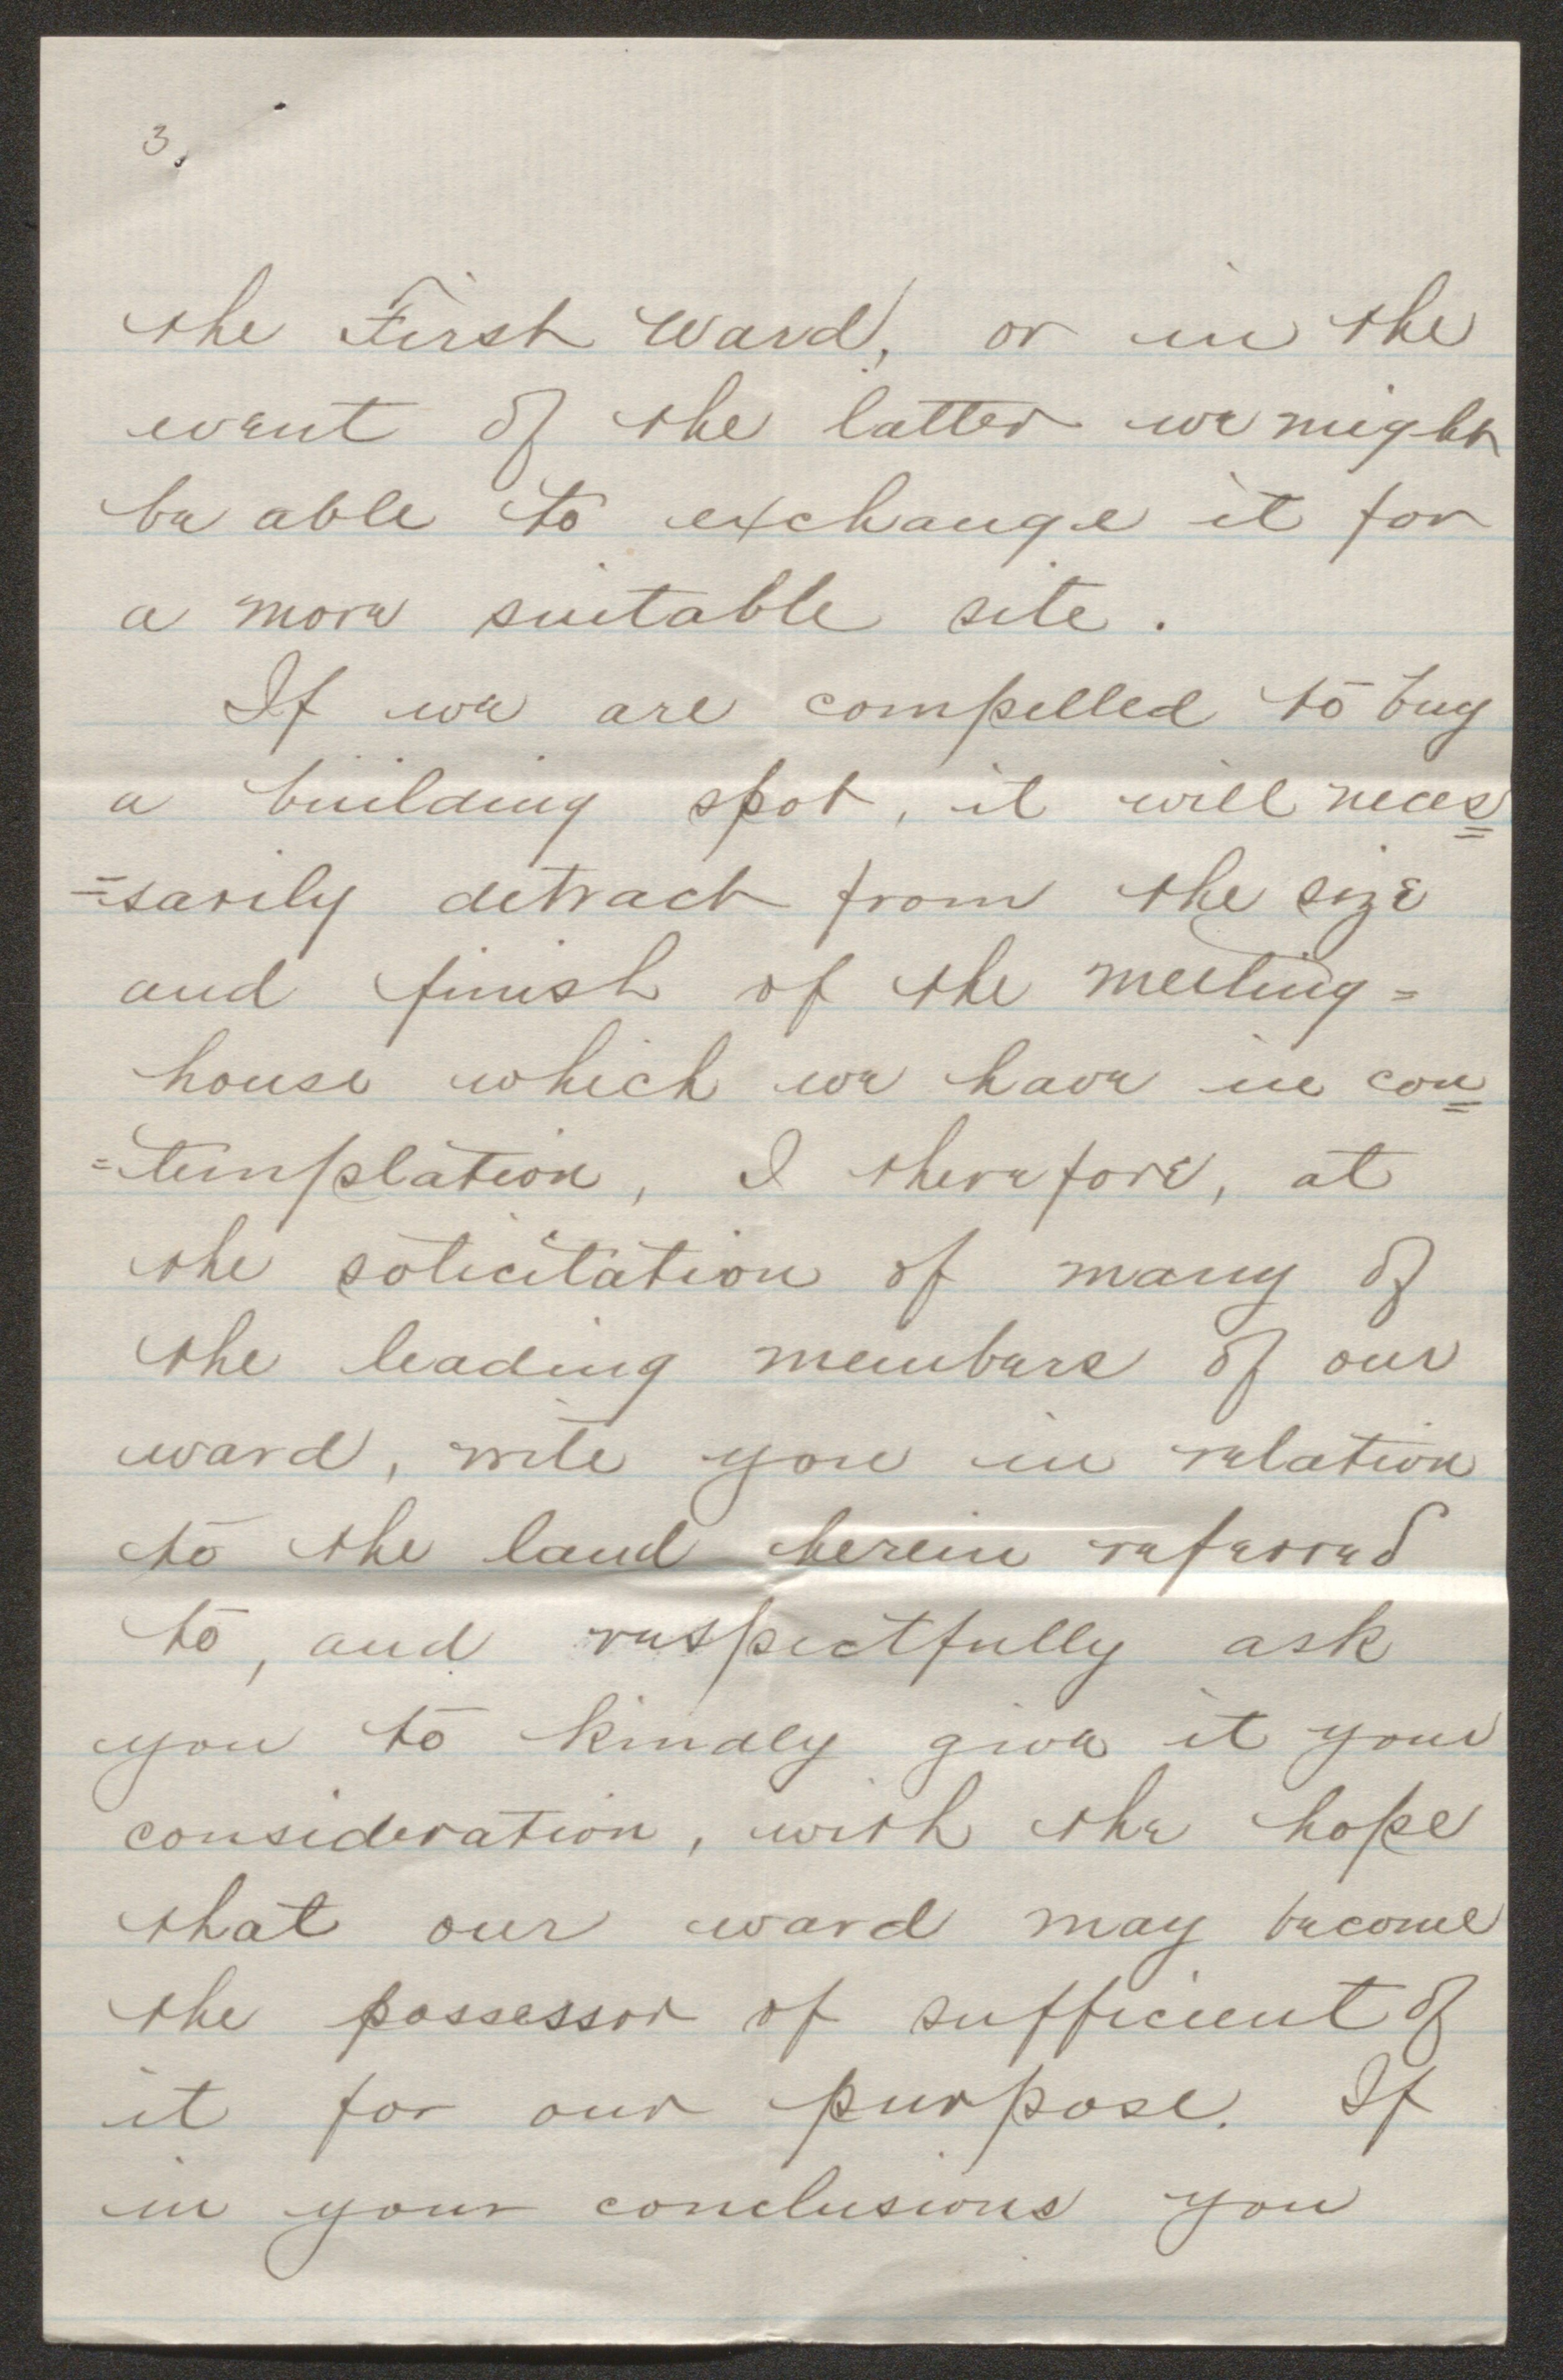 3.
the First Ward, or in the
event of the latter we might
be able to exchange it for
a more suitable site.
If we are compelled to buy
a building spot, it will neces=
=sarily detract from the size
and finish of the meeting=
house which we have in con=
=templation, I therefore, at
the solicitation of many of
the leading members of our
ward, write you in relation
to the land herein referred
to, and respectfully ask
you to kindly give it your
consideration, with the hope
that our ward may become
the possessor of sufficient of
it for our purpose. If
in your conclusions you